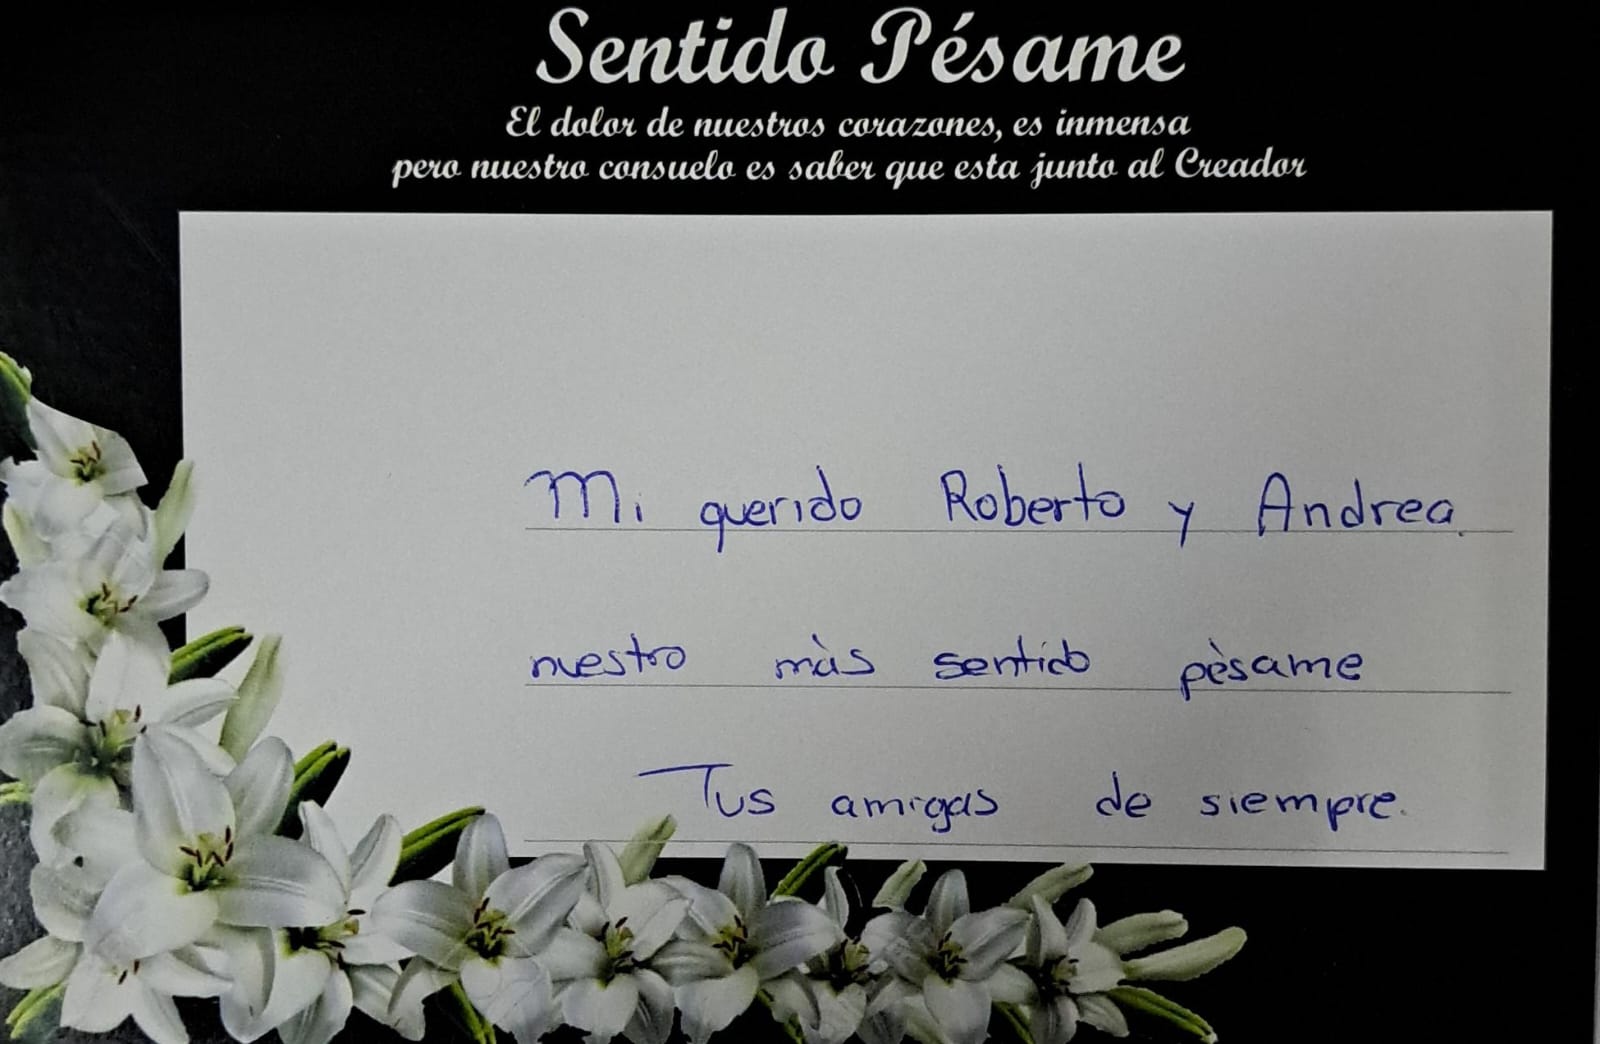 Sentido Pésame
El dolor de nuestros corazones, es inmensa
pero nuestro consuelo es saber que esta junto al Creador
Mi querido Roberto y Andrea.
nuestro màs sentido pèsame
Tus amigas de siempre.